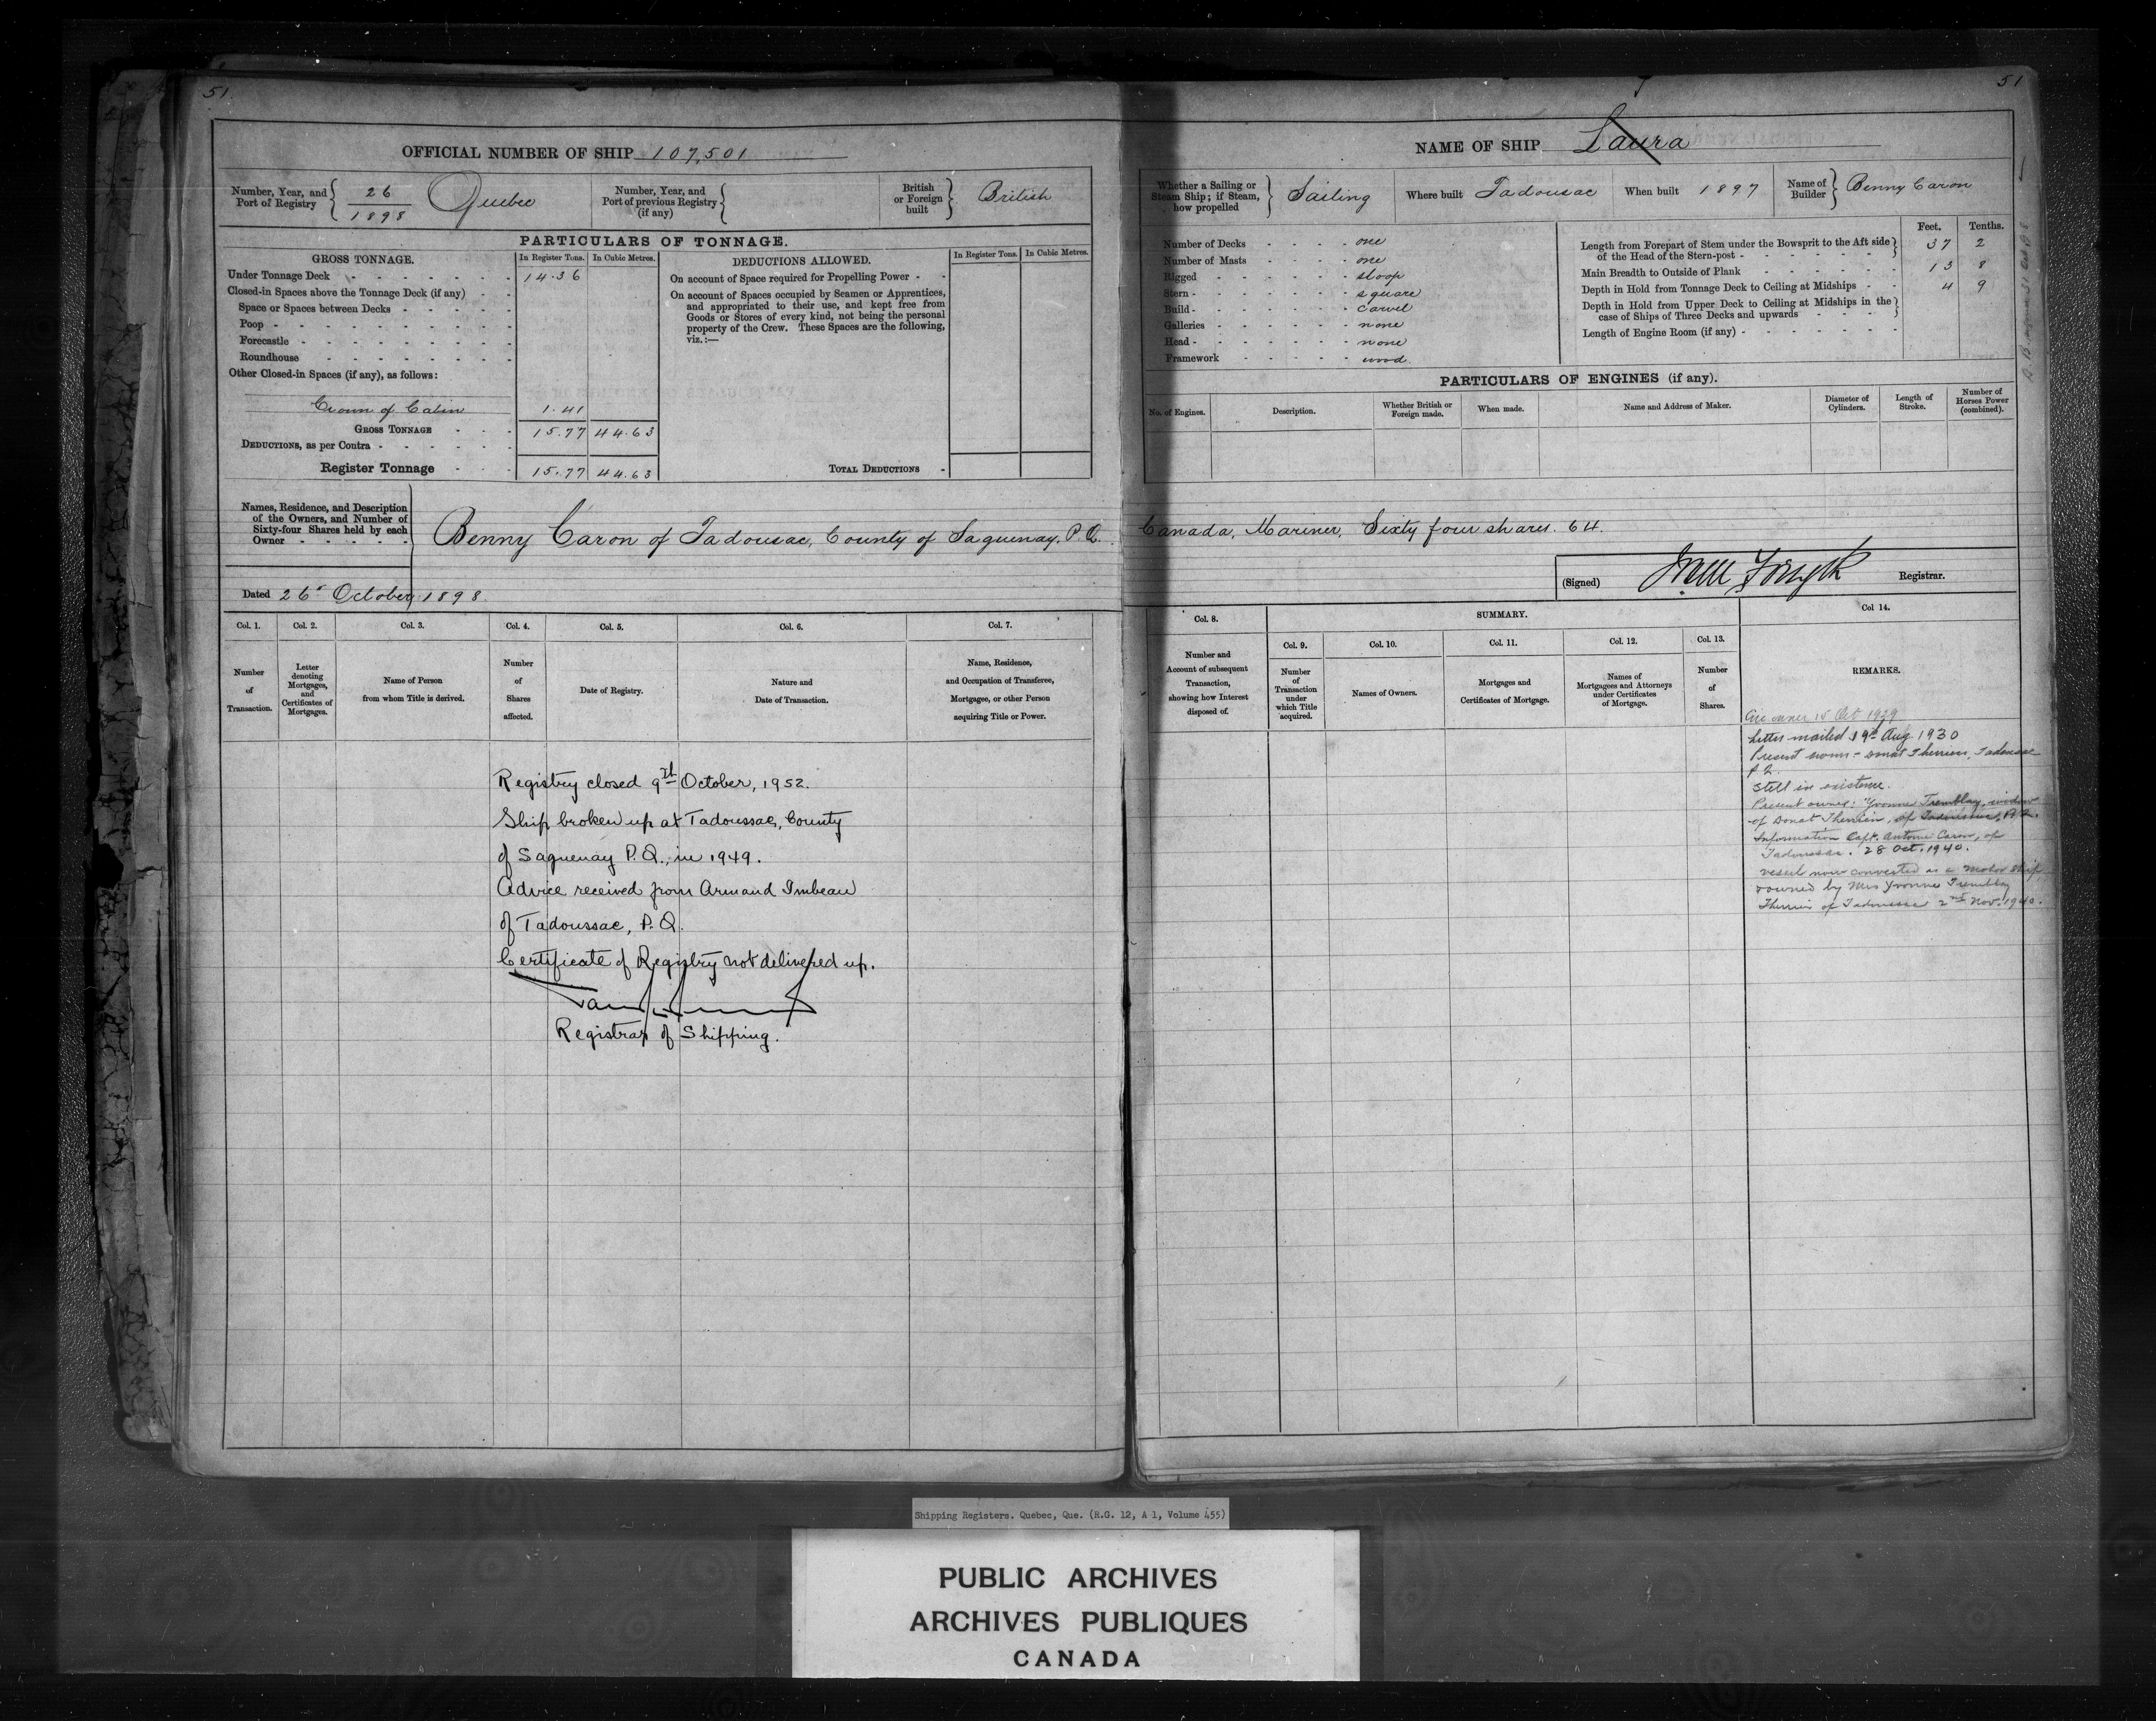 51
OFFICIAL NUMBER OF SHIP 107,501
Number, Year, and Port of Registry 26 1898 Quebec
Number, Year, and Port of previous Registry (if any)
British or Foreign built British
PARTICULARS OF TONNAGE.
GROSS TONNAGE. In Register Tons. In Cubic Metres.
Under Tonnage Deck 14.36
Closed-in Spaces above the Tonnage Deck (if any)
Space or Spaces between Decks
Poop
Forecastle
Roundhouse
Other Closed-in Spaces (if any), as follows:
Crown of Cabin 1.41
GROSS TONNAGE 15.77 44.63
DEDUCTIONS, as per Contra
Register Tonnage 15.77 44.63
DEDUCTIONS ALLOWED. In Register Tons. In Cubic Metres.
On account of Space required for Propelling Power
On account of Spaces occupied by Seamen or Apprentices,
and appropriated to their use, and kept free from
Goods or Stores of every kind, not being the personal
property of the Crew. These Spaces are the following,
viz.:—
TOTAL DEDUCTIONS
Names, Residence, and Description
of the Owners, and Number of
Sixty-four Shares held by each
Owner
Benny Caron of Tadousac, County of Saguenay, P.Q.
Dated 26 October 1898
Col. 1. Col. 2. Col. 3. Col. 4. Col. 5. Col. 6. Col. 7.
Number of Transaction.
Letter denoting Mortgages, and Certificates of Mortgages.
Name of Person from whom Title is derived.
Number of Shares affected.
Date of Registry.
Nature and Date of Transaction.
Name, Residence, and Occupation of Transferee, Mortgagee, or other Person acquiring Title or Power.
Registry closed 9th October, 1952.
Ship broken up at Tadoussac, County
of Saguenay P.Q., in 1949.
Advice received from Armand Imbeau
of Tadoussac, P.Q.
Certificate of Registry not delivered up.
Registrar of Shipping.
51
NAME OF SHIP Laura
Whether a Sailing or Steam Ship; if Steam, how propelled Sailing
Where built Tadousac
When built 1897
Name of Builder Benny Caron
Number of Decks one
Number of Masts one
Rigged sloop
Stern square
Build carvel
Galleries none
Head none
Framework wood
Feet. Tenths.
Length from Forepart of Stem under the Bowsprit to the Aft side of the Head of the Stern-post 37 2
Main Breadth to Outside of Plank 13 8
Depth in Hold from Tonnage Deck to Ceiling at Midships 4 9
Depth in Hold from Upper Deck to Ceiling at Midships in the case of Ships of Three Decks and upwards
Length of Engine Room (if any)
PARTICULARS OF ENGINES (if any).
No. of Engines.
Description.
Whether British or Foreign made.
When made.
Name and Address of Maker.
Diameter of Cylinders.
Length of Stroke.
Number of Horses Power (combined).
Canada, Mariner, Sixty four shares. 64.
(Signed) Forsyth Registrar.
Col. 8. SUMMARY. Col 14.
Col. 9. Col. 10. Col. 11. Col. 12. Col. 13.
Number and Account of subsequent Transaction, showing how Interest disposed of.
Number of Transaction under which Title acquired.
Names of Owners.
Mortgages and Certificates of Mortgage.
Names of Mortgagees and Attorneys under Certificates of Mortgage.
Number of Shares.
REMARKS.
owner 15 Oct 1929
Letter mailed 19th Aug 1930
Present Donat Therrien, Tadoussac
P.Q.
Still in existence.
Present owner: Yvonne Tremblay, widow
of Donat Therrien, of Tadoussac, P.Q.
Information Capt. Antoine Caron, of
Tadoussac. 28 Oct. 1940.
vessel now converted as a Motor Ship
owned by Mrs Yvonne Tremblay
Therrien of Tadoussac 2nd Nov. 1940.
Shipping Registers. Quebec, Que. (R.G. 12, A 1, Volume 455)
PUBLIC ARCHIVES
ARCHIVES PUBLIQUES
CANADA